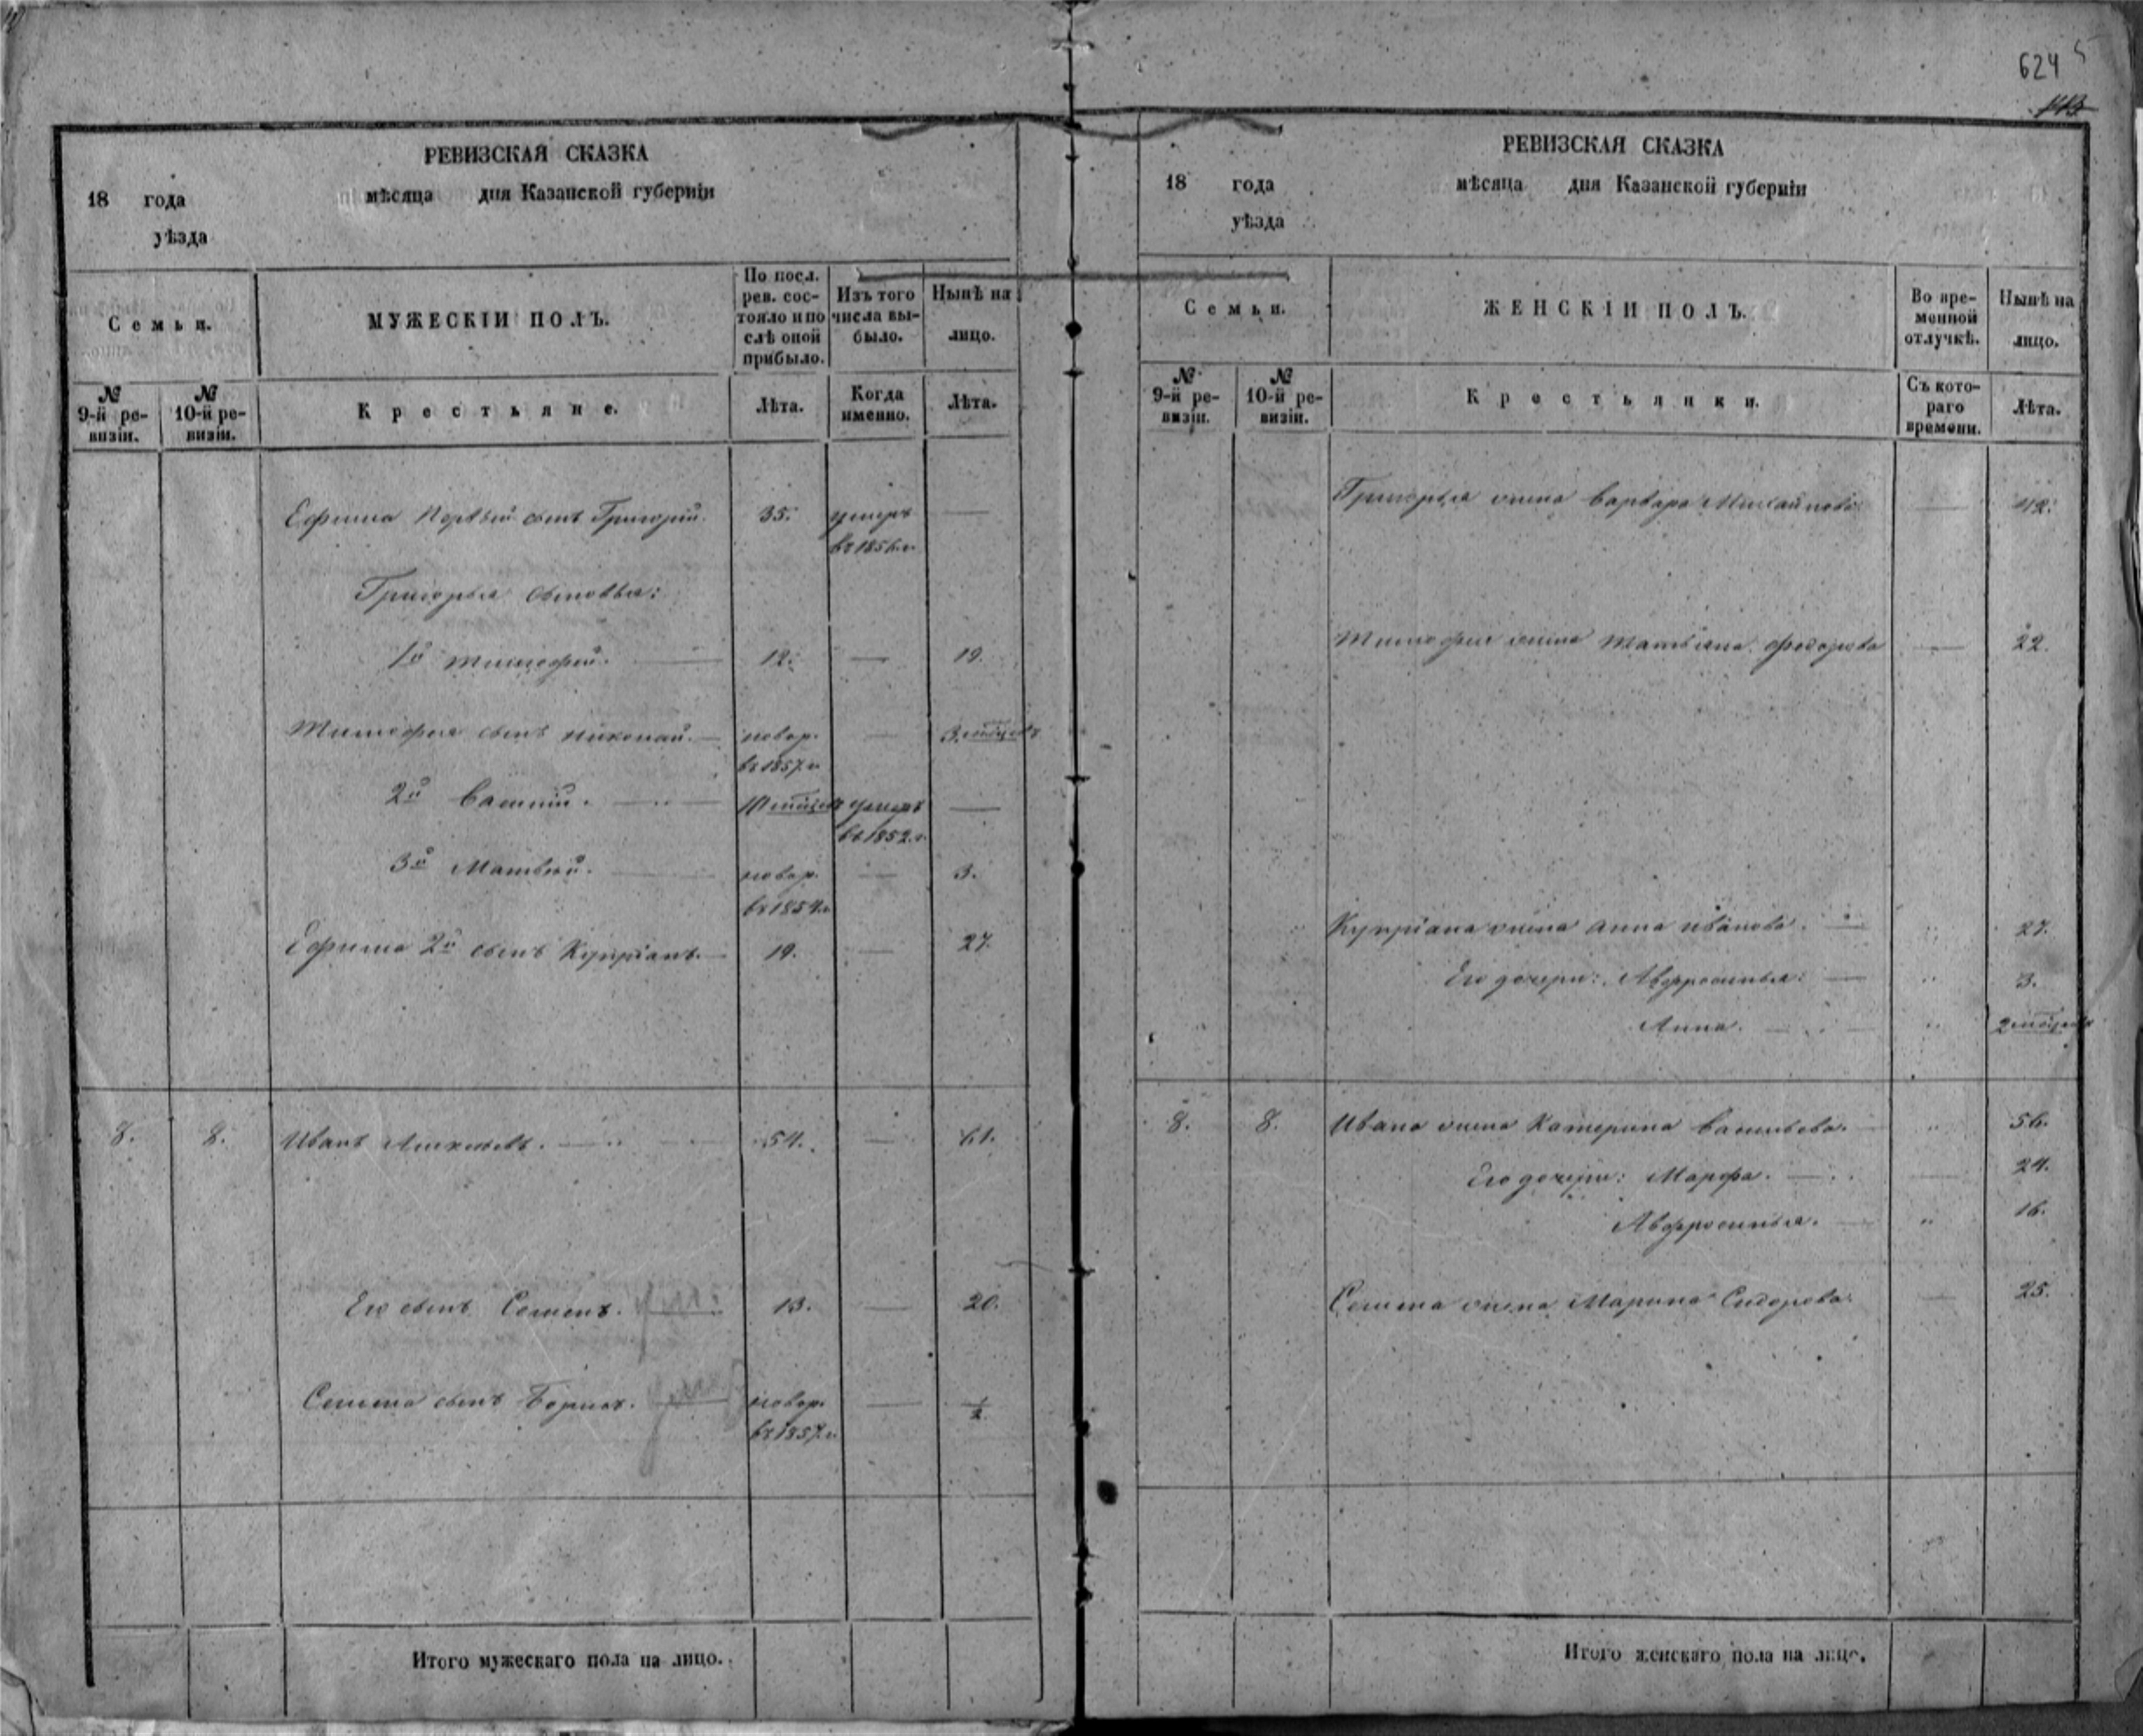 624
РЕВИЗСКАЯ СКАЗКА
18 года мѣсяца дня Казанской губерніи
уѣзда
Семьи.
МУЖЕСКІЙ ПОЛЪ.
По посл. рев. состояло и послѣ оной прибыло.
Изъ того числа выбыло.
Нынѣ на лицо.
№ 9-й ревизіи.
№ 10-й ревизіи.
Крестьяне.
Лѣта.
Когда именно.
Лѣта.
Ефима сынъ Григорій. 35. умеръ —
въ 1856.г.
Григорья сыновья:
1й Тимофей. — 12. — 19.
Тимофея сынъ Николай. — новор. — 3 мѣсяцевъ
въ 1857.г.
2й Василій. — умеръ —
въ 1852.г.
3й Матвей. — новор. — 3.
въ 1854г.
Ефима 2й сынъ Купріанъ. — 19. — 27.
8. 8. Иванъ Алексѣевъ. — 54. — 61.
Его сынъ Семенъ. 13. — 20.
Семена сынъ Борисъ. новор. — 1/2
въ 1857.г.
Итого мужескаго пола на лицо.
РЕВИЗСКАЯ СКАЗКА
18 года мѣсяца дня Казанской губерніи
уѣзда
Семьи.
ЖЕНСКІЙ ПОЛЪ.
Во временной отлучкѣ.
Нынѣ на лицо.
№ 9-й ревизіи.
№ 10-й ревизіи.
Крестьянки.
Съ котораго времени.
Лѣта.
Григорья жена Варвара Михайлова — 42.
Тимофея жена Татьяна Федорова — 22.
Купріана жена Анна Иванова. — " 27.
Его дочери: Авфросинья: — " 3.
Анна. — " 2 мѣсяцевъ
8. 8. Ивана жена Катерина Васильева. — " 56.
Его дочери: Марфа. — 24.
Авфросинья. — " 16.
Семена жена Марина Сидорова — 25.
Итого женскаго пола на лицо.